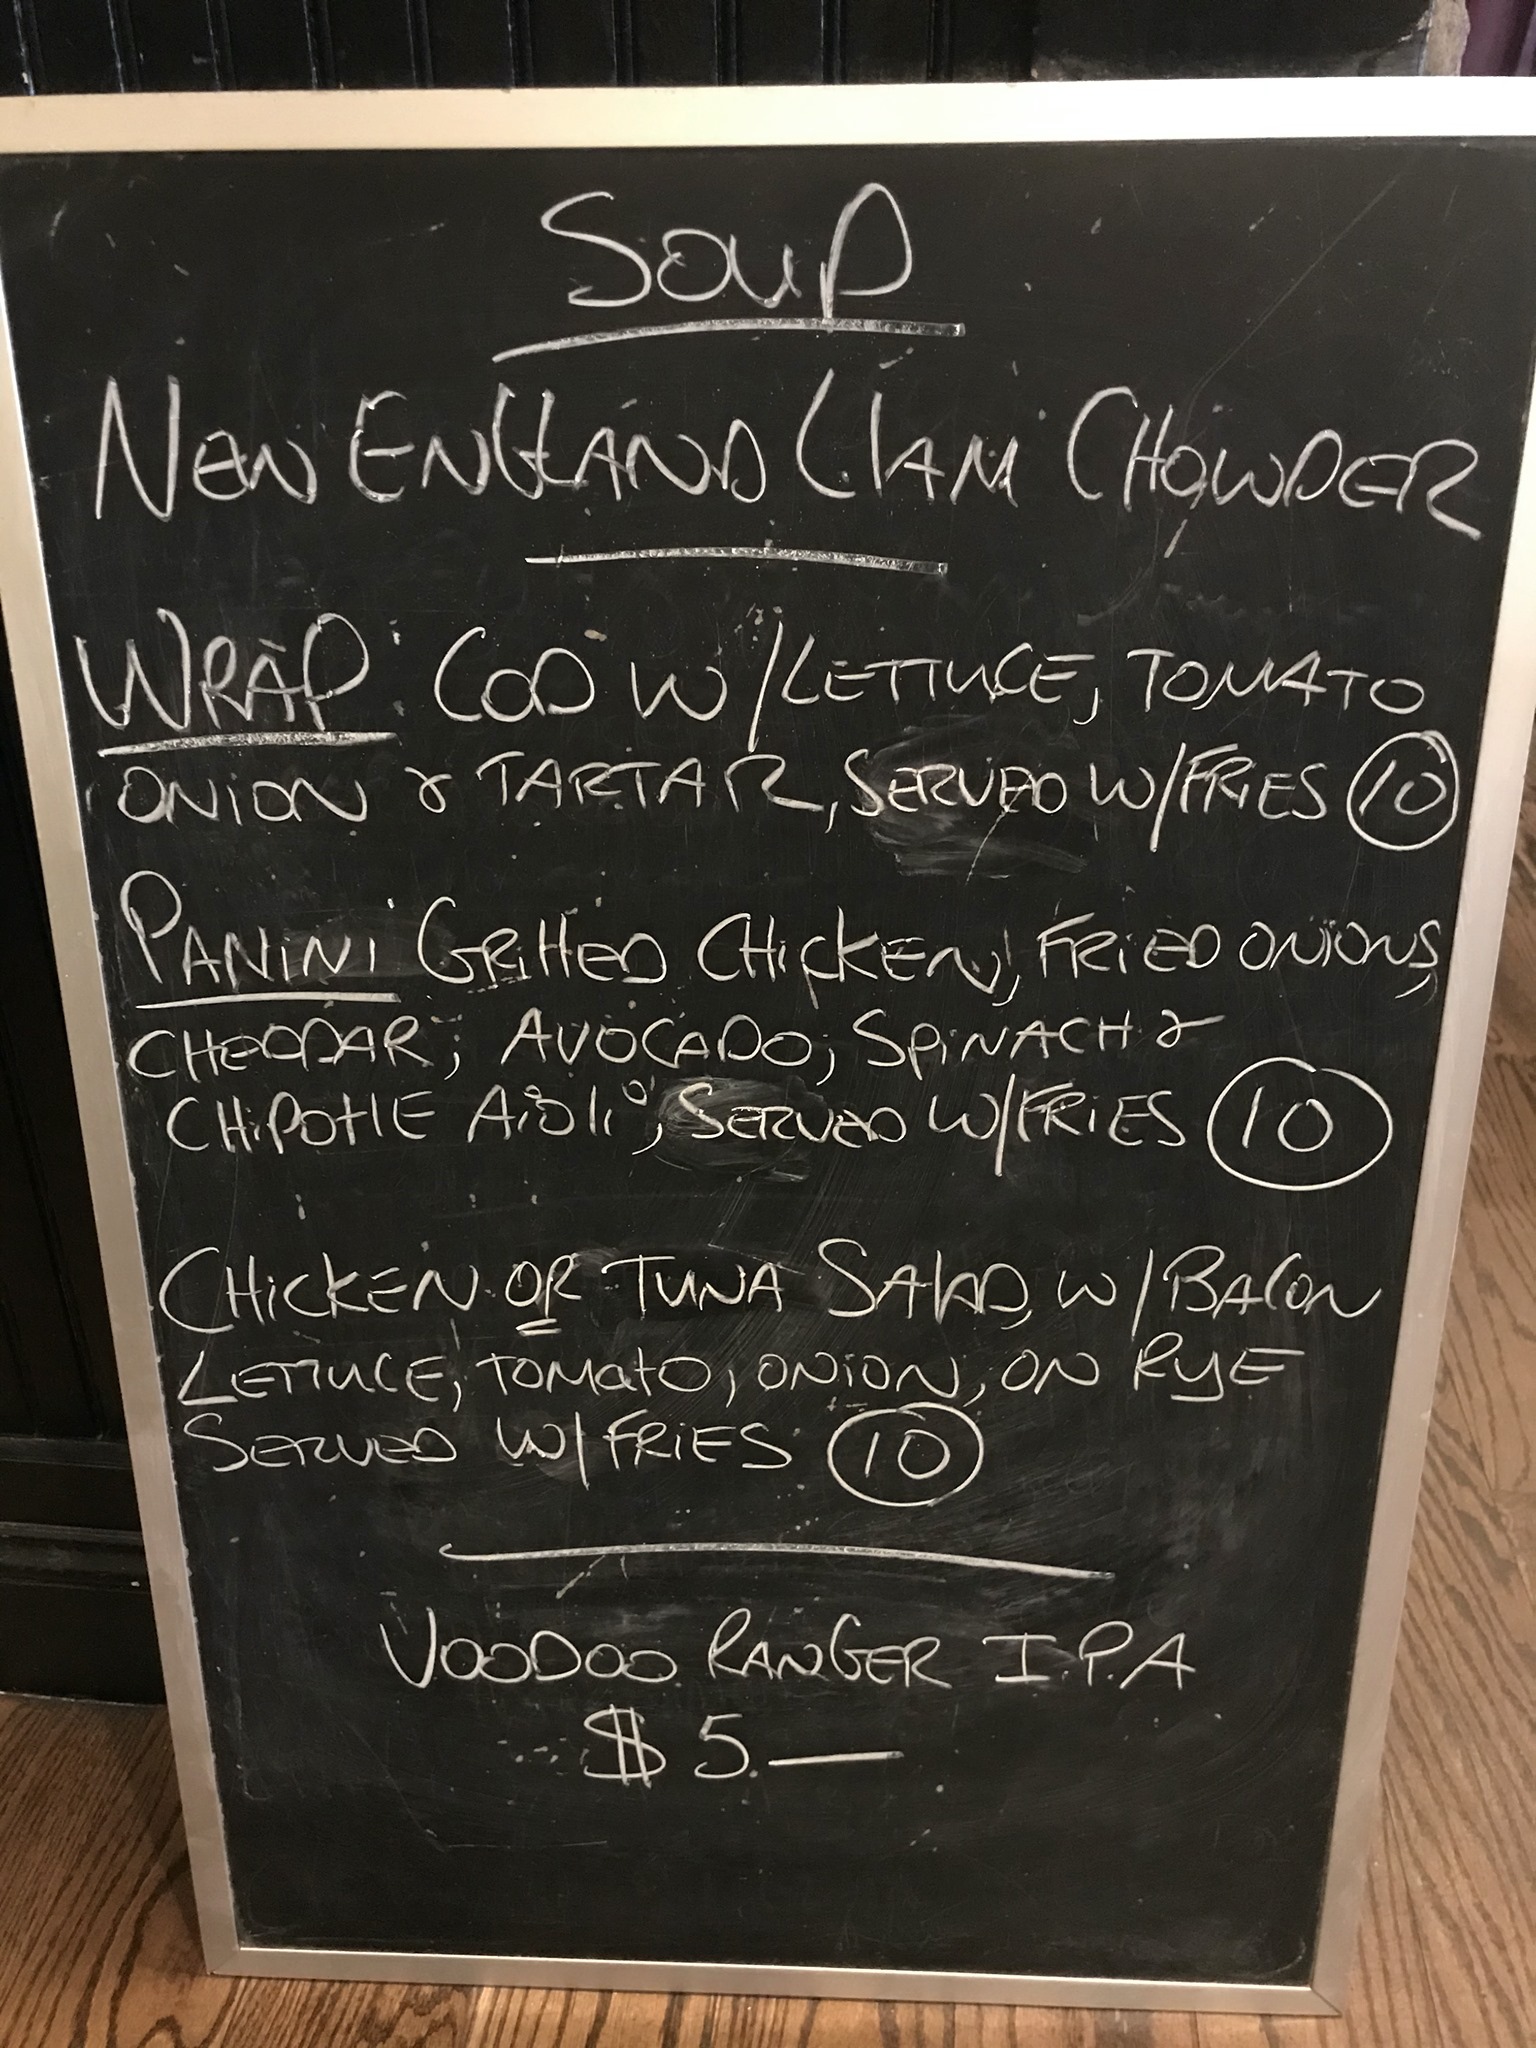 SOUP
NEW ENGLAND CLAM CHOWDER
WRAP: COD W/LETTUCE, TOMATO
ONION & TARTAR, SERVED W/FRIES 10
PANINI GRILLED CHICKEN, FRIED ONIONS,
CHEDDAR, AVOCADO, SPINACH &
CHIPOTLE AIOLI, SERVED W/FRIES 10
CHICKEN OR TUNA SALAD, W/BACON
LETTUCE, TOMATO, ONION, ON RYE
SERVED W/FRIES 10
VOODOO RANGER I.P.A
$5.—